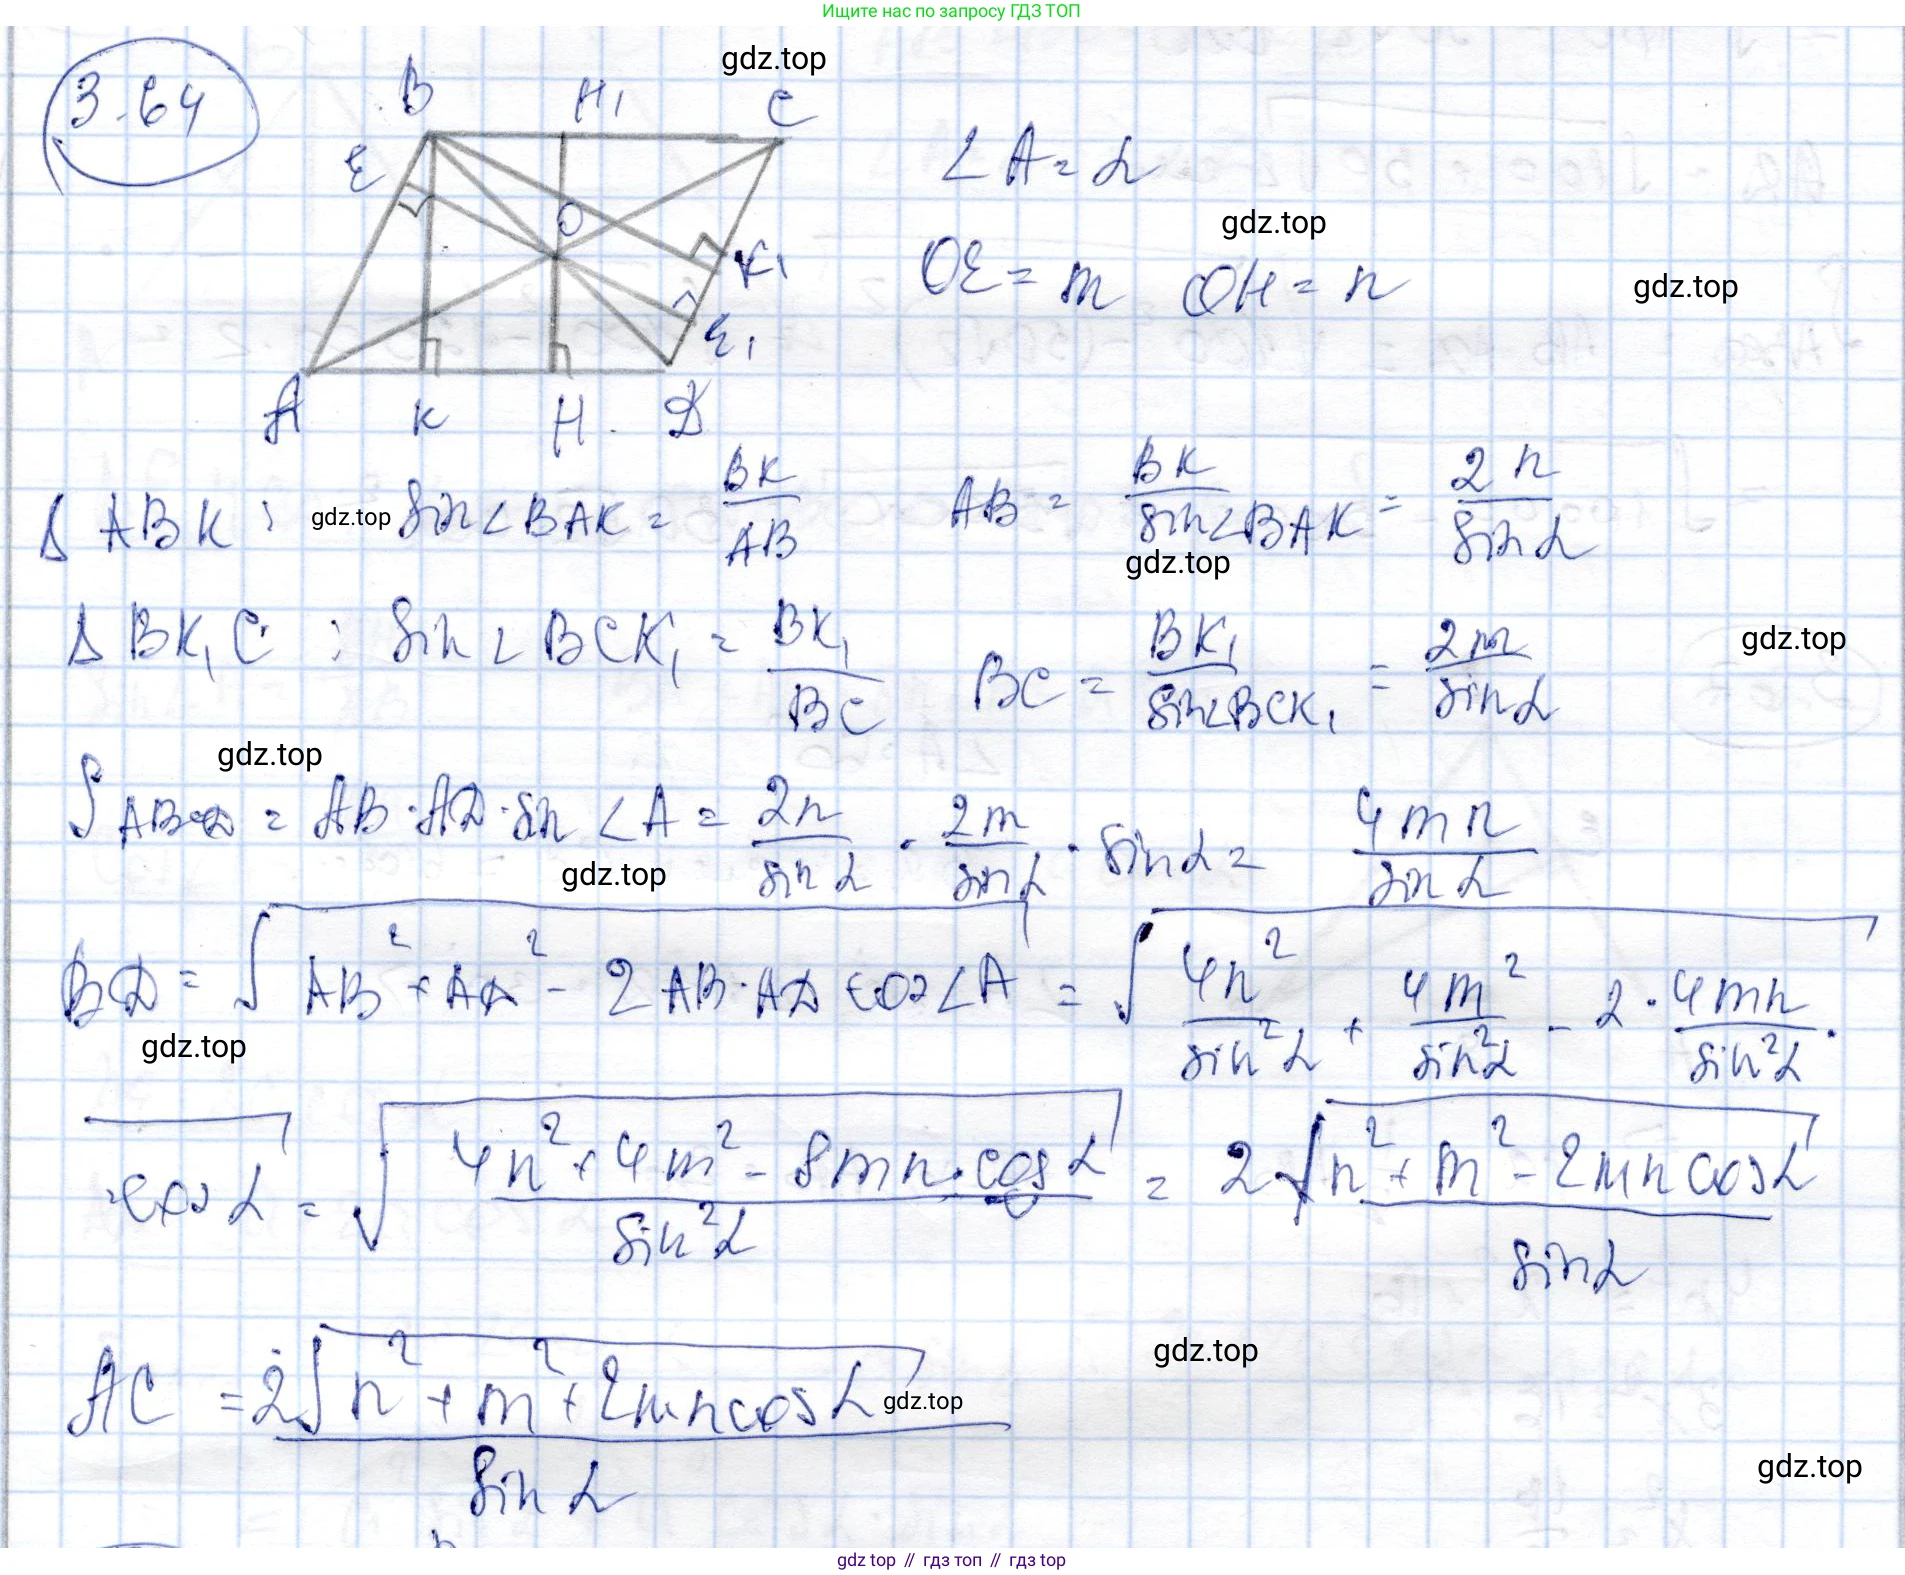 Ищите нас по запросу ГДЗ ТОП
3.64
gdz.top
B H₁ C
E
O
K₁
E₁
A K H D
∠A = α
gdz.top
OE = m OH = n
gdz.top
Δ ABK : gdz.top sin∠BAK = BK/AB AB = BK/sin∠BAK = 2n/sinα
gdz.top
Δ BK₁C : sin∠BCK₁ = BK₁/BC BC = BK₁/sin∠BCK₁ = 2m/sinα
gdz.top
gdz.top
S ABCD = AB·AD·sin∠A = 2n/sinα · 2m/sinα · sinα = 4mn/sinα
gdz.top
BD = √(AB² + AD² - 2AB·AD cos∠A) = √(4n²/sin²α + 4m²/sin²α - 2·4mn/sin²α ·
gdz.top
·cosα) = √((4n² + 4m² - 8mn·cosα)/sin²α) = 2√(n² + m² - 2mn cosα)/sinα
gdz.top
AC = 2√(n² + m² + 2mn cosα)/sinα
gdz.top
gdz.top
gdz top // гдз топ // гдз top